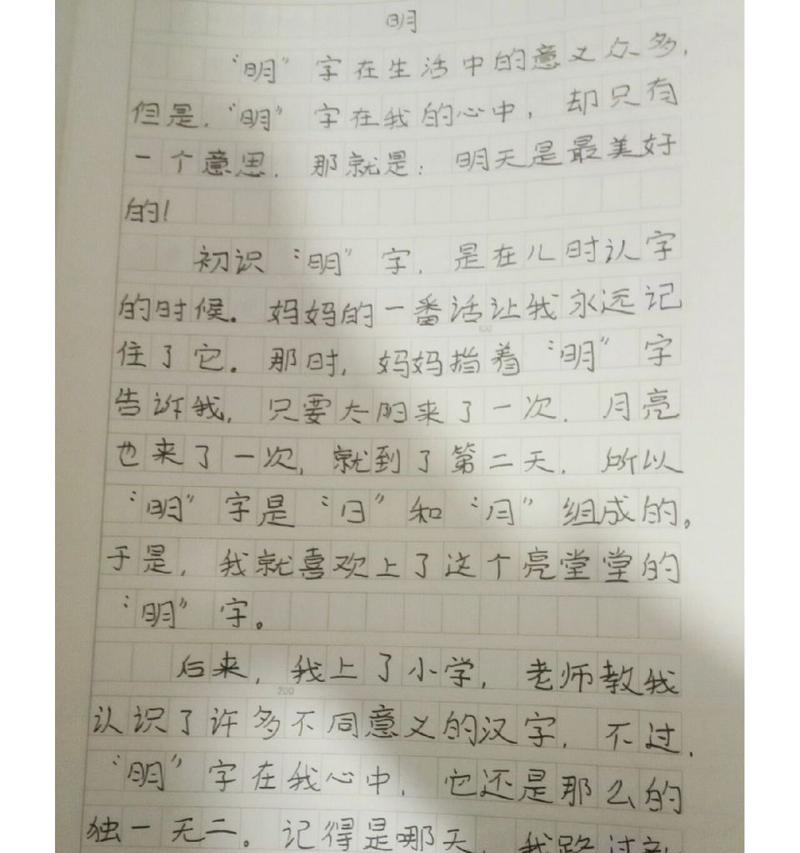 明
“明”字在生活中的意义众多，
但是，“明”字在我的心中，却只有
一个意思，那就是：明天是最美好
的！
初识“明”字，是在儿时认字
的时候。妈妈的一番话让我永远记
住了它。那时，妈妈指着“明”字
告诉我，只要太阳来了一次，月亮
也来了一次，就到了第二天，所以
“明”字是“日”和“月”组成的。
于是，我就喜欢上了这个亮堂堂的
“明”字。
后来，我上了小学，老师教我
200
认识了许多不同意义的汉字，不过，
“明”字在我心中，它还是那么的
独一无二。记得是哪天，我路过